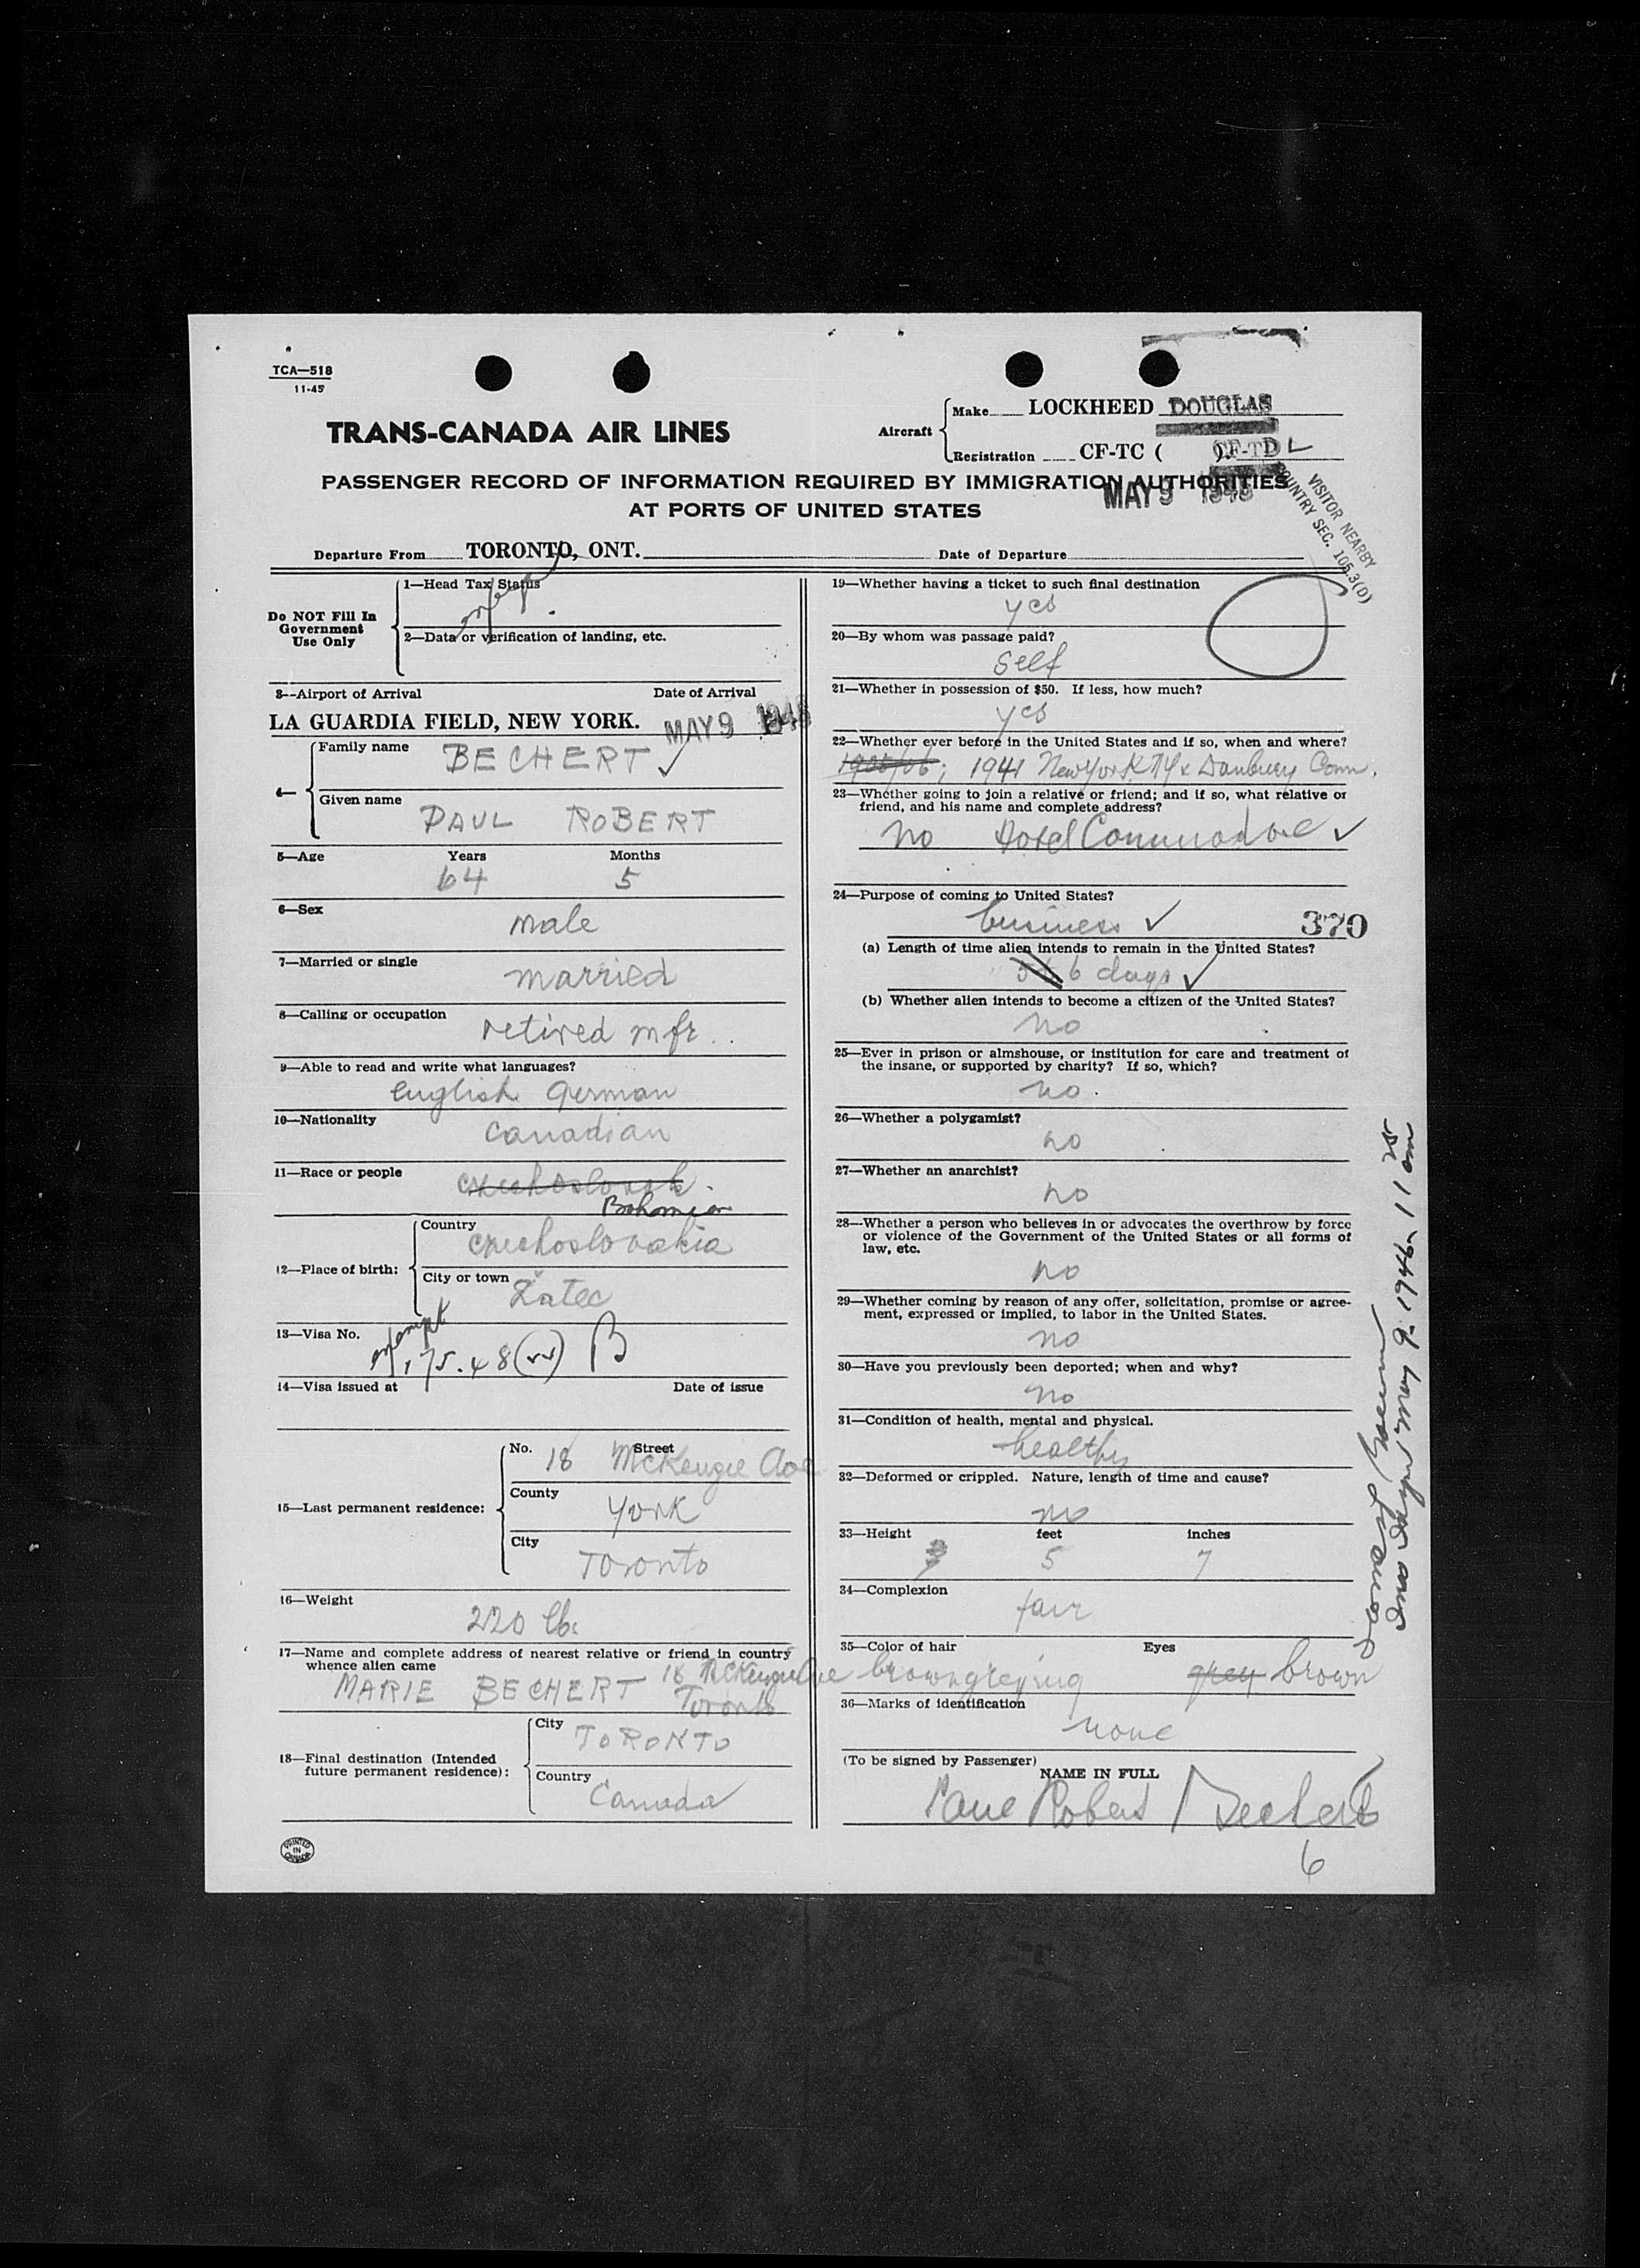 TCA—518
11-45
TRANS-CANADA AIR LINES
Aircraft
Make LOCKHEED DOUGLAS
Registration CF-TC ( ) CF-TD L
PASSENGER RECORD OF INFORMATION REQUIRED BY IMMIGRATION AUTHORITIES
AT PORTS OF UNITED STATES
MAY 9 1946
VISITOR NEARBY
COUNTRY SEC. 105.3(D)
Departure From TORONTO, ONT. Date of Departure
Do NOT Fill In
Government
Use Only
1—Head Tax Status
2—Data or verification of landing, etc.
3—Airport of Arrival Date of Arrival
LA GUARDIA FIELD, NEW YORK. MAY 9 1946
4—
Family name BECHERT ✓
Given name
PAUL ROBERT
5—Age Years Months
64 5
6—Sex
male
7—Married or single
married
8—Calling or occupation
retired mfr.
9—Able to read and write what languages?
English German
10—Nationality
Canadian
11—Race or people
Czechoslovak
Bohemian
12—Place of birth:
Country
Czechoslovakia
City or town
Žatec
13—Visa No.
exempt
175.48 B
14—Visa issued at Date of issue
15—Last permanent residence:
No. 18 Street McKenzie Ave
County
York
City
Toronto
16—Weight
220 lbs
17—Name and complete address of nearest relative or friend in country
whence alien came
MARIE BECHERT 18 McKenzie Ave
Toronto
18—Final destination (Intended
future permanent residence):
City
TORONTO
Country
Canada
PRINTED
IN
CANADA
19—Whether having a ticket to such final destination
yes
20—By whom was passage paid?
Self
21—Whether in possession of $50. If less, how much?
yes
22—Whether ever before in the United States and if so, when and where?
; 1941 New York NY & Danbury Conn.
23—Whether going to join a relative or friend; and if so, what relative or
friend, and his name and complete address?
No Hotel Commodore ✓
24—Purpose of coming to United States?
business ✓ 370
(a) Length of time alien intends to remain in the United States?
6 days ✓
(b) Whether alien intends to become a citizen of the United States?
no
25—Ever in prison or almshouse, or institution for care and treatment of
the insane, or supported by charity? If so, which?
no.
26—Whether a polygamist?
no
27—Whether an anarchist?
no
28—Whether a person who believes in or advocates the overthrow by force
or violence of the Government of the United States or all forms of
law, etc.
no
29—Whether coming by reason of any offer, solicitation, promise or agree-
ment, expressed or implied, to labor in the United States.
no
30—Have you previously been deported; when and why?
no
31—Condition of health, mental and physical.
healthy
32—Deformed or crippled. Nature, length of time and cause?
no
33—Height feet inches
5 7
34—Complexion
fair
35—Color of hair Eyes
brown greying grey brown
36—Marks of identification
none
(To be signed by Passenger)
NAME IN FULL
Paul Robert Bechert
6
May 9-1946- 11 25 am